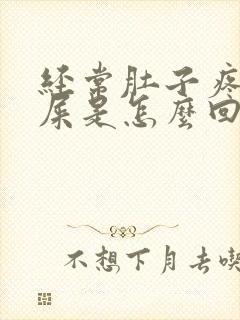 经常肚子疼
屎是怎麼回
不想下月去喫